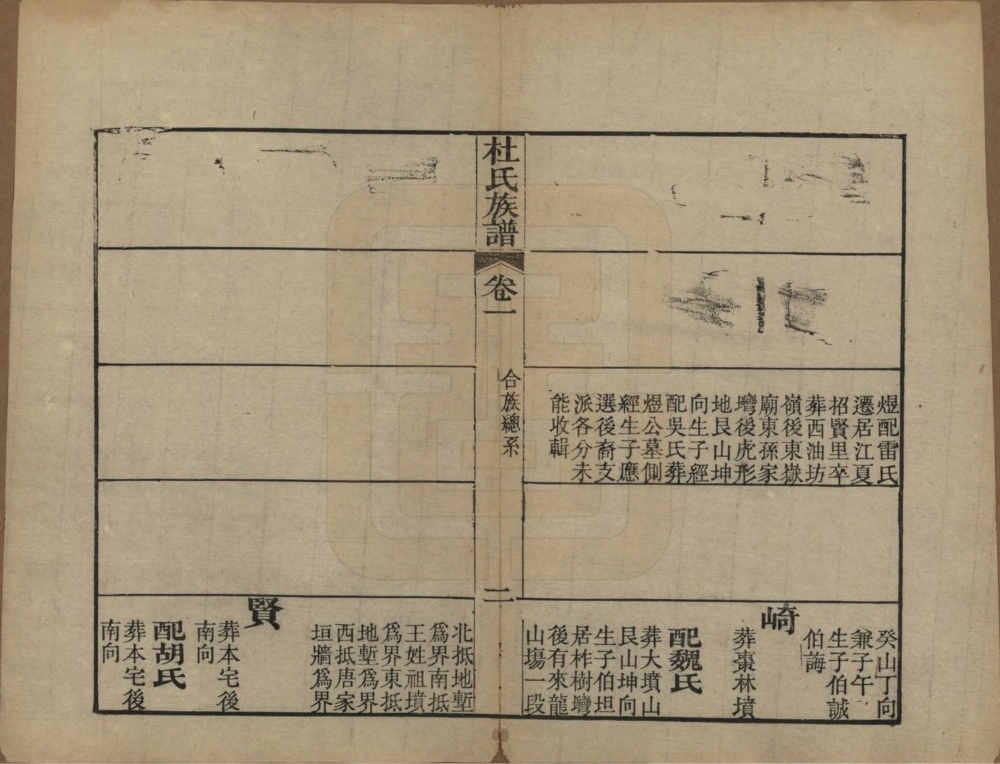 煜配雷氏
遷居江夏
招賢里卒
葬西油坊
嶺後東嶽
廟東孫家
塆後虎形
地艮山坤
向生子經
配吳氏葬
煜公墓側
經生子應
選後裔支
派各分未
能收輯
癸山丁向
兼子午
生子伯誠
伯誨
崎
葬棗林墳
配魏氏
葬大墳山
艮山坤向
生子伯坦
居柞樹塆
後有來龍
山塲一段
杜氏族譜
卷一
合族總系
二
北抵地塹
為界南抵
王姓祖墳
為界東抵
地塹為界
西抵唐家
垣牆為界
賢
葬本宅後
南向
配胡氏
葬本宅後
南向